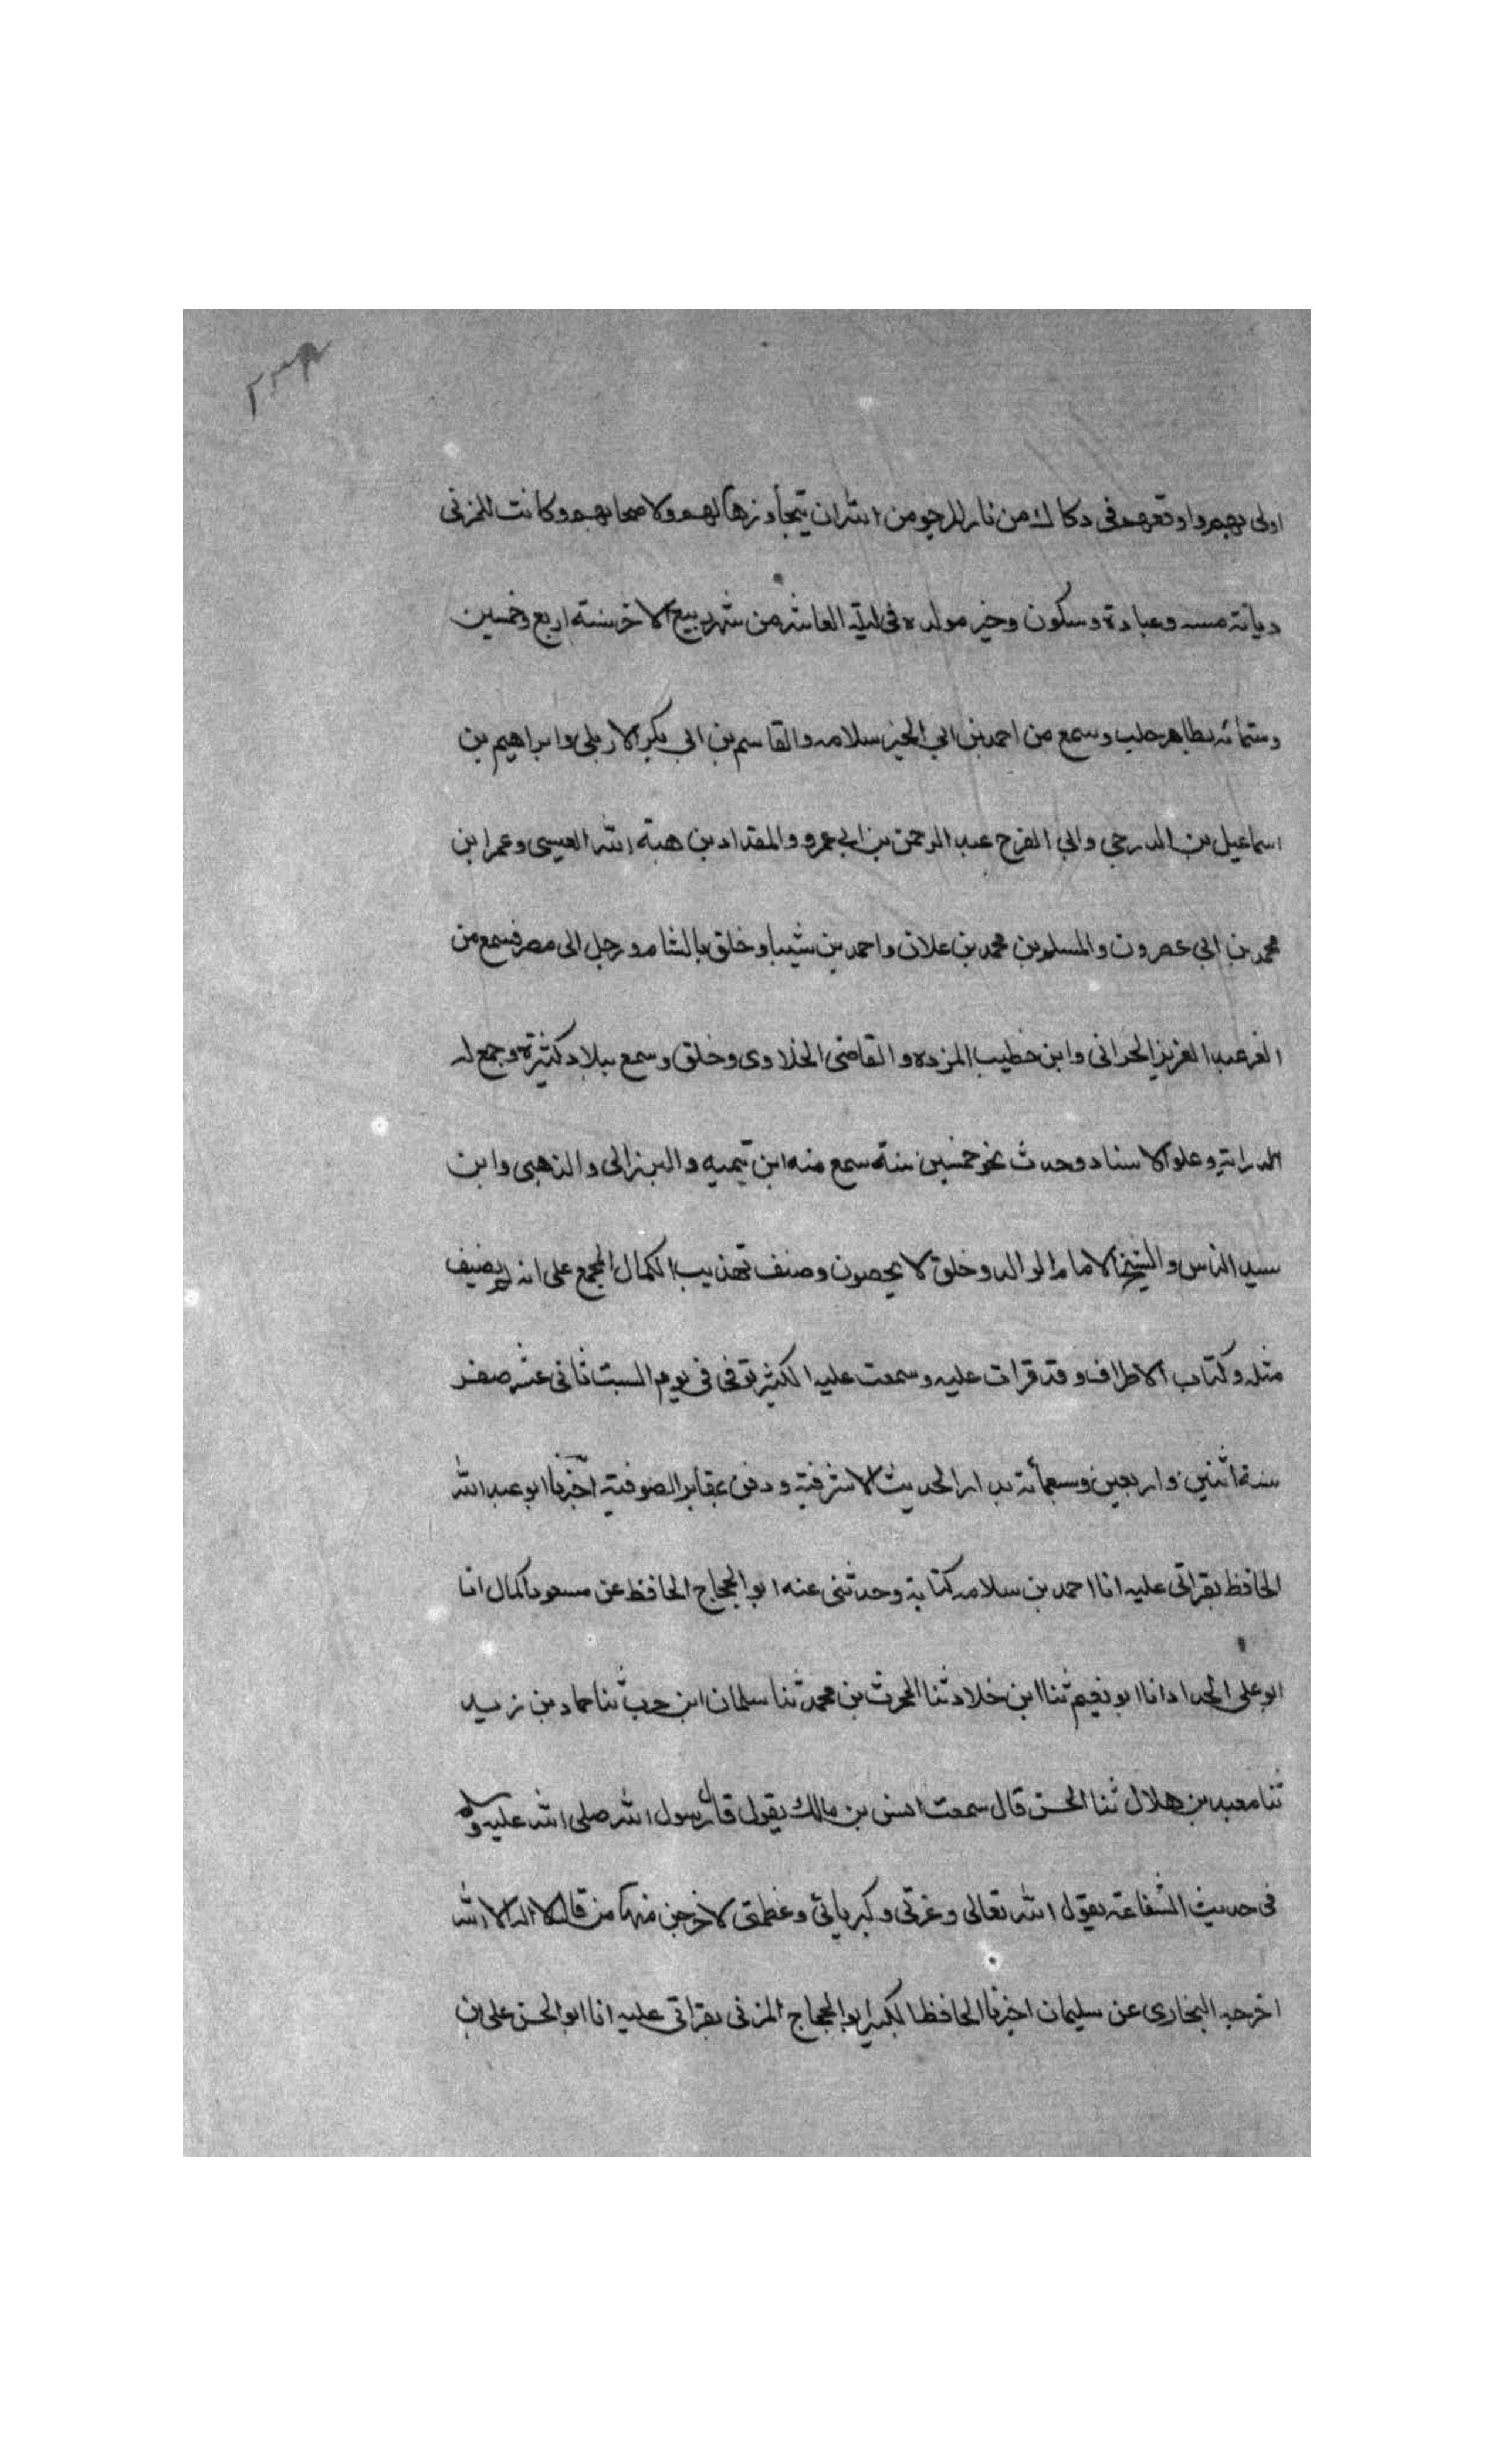 ٢٣٨
اولى بهم واوقعهم فى دكاك من نار المرجو من الله ان يتجاوزها لهم ولاصحابهم وكانت للمزنى
ديانة وعبادة وسكون وخير مولده فى ليلة العاشر من شهر ربيع الاخر سنة اربع وخمسين
وستمائه بظاهر حلب وسمع من احمد بن ابي الخير سلامه والقاسم بن ابى بكر الاربلى وابراهيم بن
اسماعيل بن الدرجى وابي الفرج عبد الرحمن بن ابي عمرو والمقداد بن هبة الله العيسى وعمر ابن
محمد بن ابى عصرون والمسلم بن محمد بن علان واحمد بن شيبا وخلق بالشام ورحل الى مصر فسمع من
الغر عبد العزيز الحرانى وابن خطيب المزده والقاضى الخلاوى وخلق وسمع ببلاد كثيرة وجمع له
الدراية وعلو الاسناد وحدث نحو خمسين سنة سمع منه ابن تيميه والبرزالى والذهبى وابن
سيد الناس والشيخ الامام الوالد وخلق لا يحصون وصنف تهذيب الكمال المجمع على انه لم يصنيف
مثله وكتاب الاطراف وقد قرات عليه وسمعت عليه الكثير توفى فى يوم السبت ثانى عشر صفر
سنة اثنين واربعين وسبعمائة بدار الحديث الاشرفية ودفن بمقابر الصوفية اخبرنا ابو عبد الله
الحافظ بقراتى عليه انا احمد بن سلامه كتابة وحدثنى عنه ابو الحجاج الحافظ عن مسعود الجمال انا
ابو على الحداد انا ابو نعيم ثنا ابن خلاد ثنا الحرث بن محمد ثنا سلمان ابن حرب ثنا حماد بن زيد
ثنا معبد بن هلال ثنا الحسن قال سمعت انس بن مالك يقول قال رسول الله صلى الله عليه وسلم
فى حديث الشفاعة يقول الله تعالى وعزتى وكبريائى وعظمتى لاخرجن منها من قال لا اله الا الله
اخرجه البخارى عن سليمان اخبرنا الحافظ الكبير ابو الحجاج المزنى بقراتى عليه انا ابو الحسن على بن